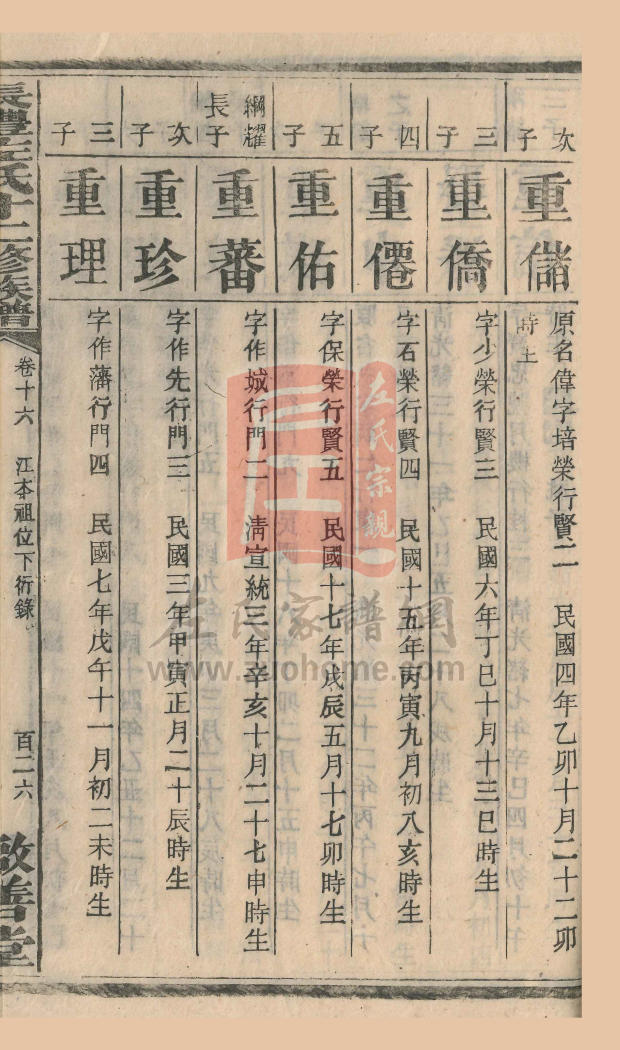 次子
重儲
原名偉字培榮行賢二　民國四年乙卯十月二十二卯
時生
三子
重僑
字少榮行賢三　民國六年丁巳十月十三巳時生
四子
重僊
字石榮行賢四　民國十五年丙寅九月初八亥時生
五子
重佑
字保榮行賢五　民國十七年戊辰五月十七卯時生
綱耀
長子
重蕃
字作城行門二　清宣統三年辛亥十月二十七申時生
次子
重珍
字作先行門三　民國三年甲寅正月二十辰時生
三子
重理
字作藩行門四　民國七年戊午十一月初二未時生
長澧左氏十二修族譜
卷十六　江本祖位下衍錄
百二六
啟善堂
左氏宗親
左氏家譜網
www.zuohome.com